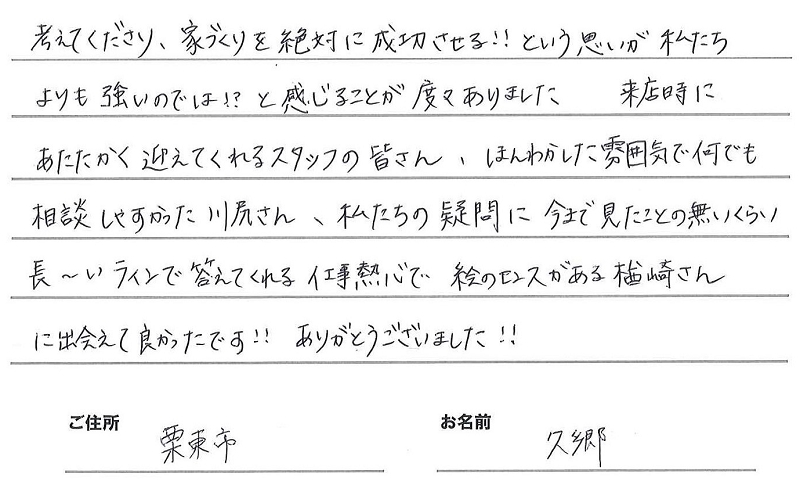 考えてくださり、家づくりを絶対に成功させる!!という思いが私たち
よりも強いのでは!?と感じることが度々ありました 来店時に
あたたかく迎えてくれるスタッフの皆さん、ほんわかした雰囲気で何でも
相談しやすかった川尻さん、私たちの疑問に今まで見たことの無いくらい
長〜いラインで答えてくれる仕事熱心で絵のセンスがある楢崎さん
に出会えて良かったです!! ありがとうございました!!
ご住所 栗東市 お名前 久郷